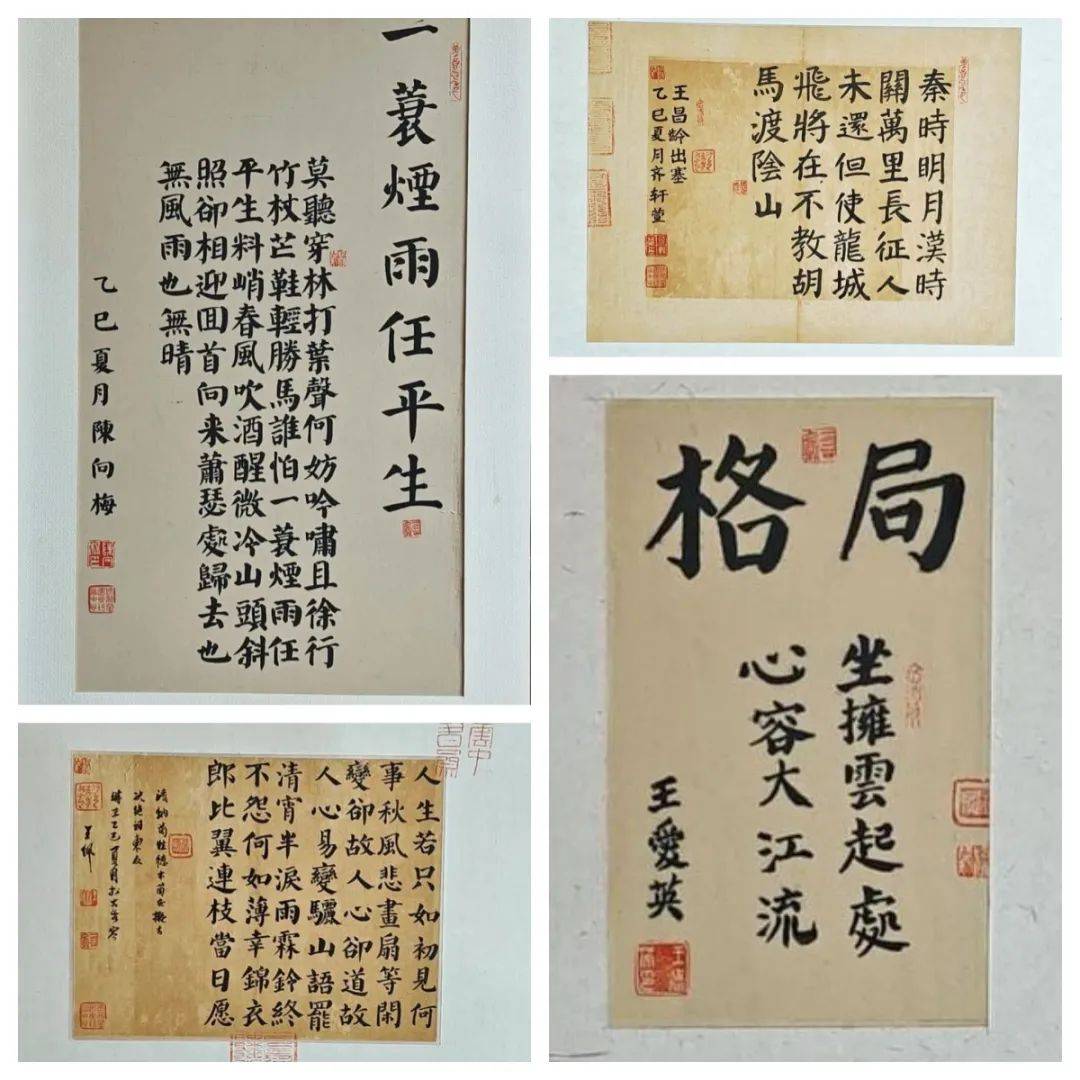 一蓑煙雨任平生
莫聽穿林打葉聲何妨吟嘯且徐行
竹杖芒鞋輕勝馬誰怕一蓑煙雨任
平生料峭春風吹酒醒微冷山頭斜
照卻相迎回首向来蕭瑟處歸去也
無風雨也無晴
乙巳夏月陳向梅
秦時明月漢時
關萬里長征人
未還但使龍城
飛將在不教胡
馬渡陰山
王昌龄出塞
乙巳夏月齐轩萱
人生若只如初見何
事秋風悲畫扇等閑
變卻故人心卻道故
人心易變驪山語罷
清宵半淚雨霖鈴終
不怨何如薄幸錦衣
郎比翼連枝當日愿
清納蘭性德木蘭花擬古
决绝詞柬友
乙巳夏月
格局
坐擁雲起處
心容大江流
王愛英